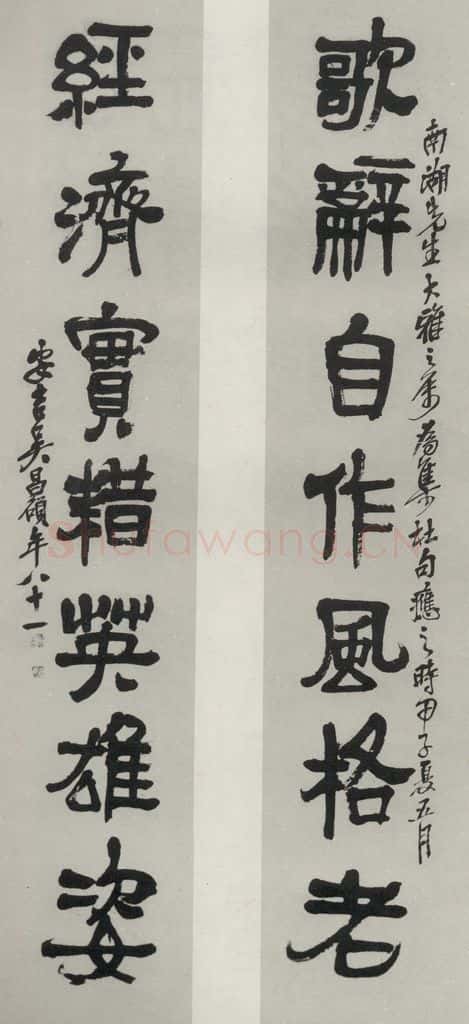 南湖先生大雅之属為集杜句應之時甲子夏五月
歌辭自作風格老
經濟實耤英雄姿
安吉吳昌碩年八十一
Shufawang.CN